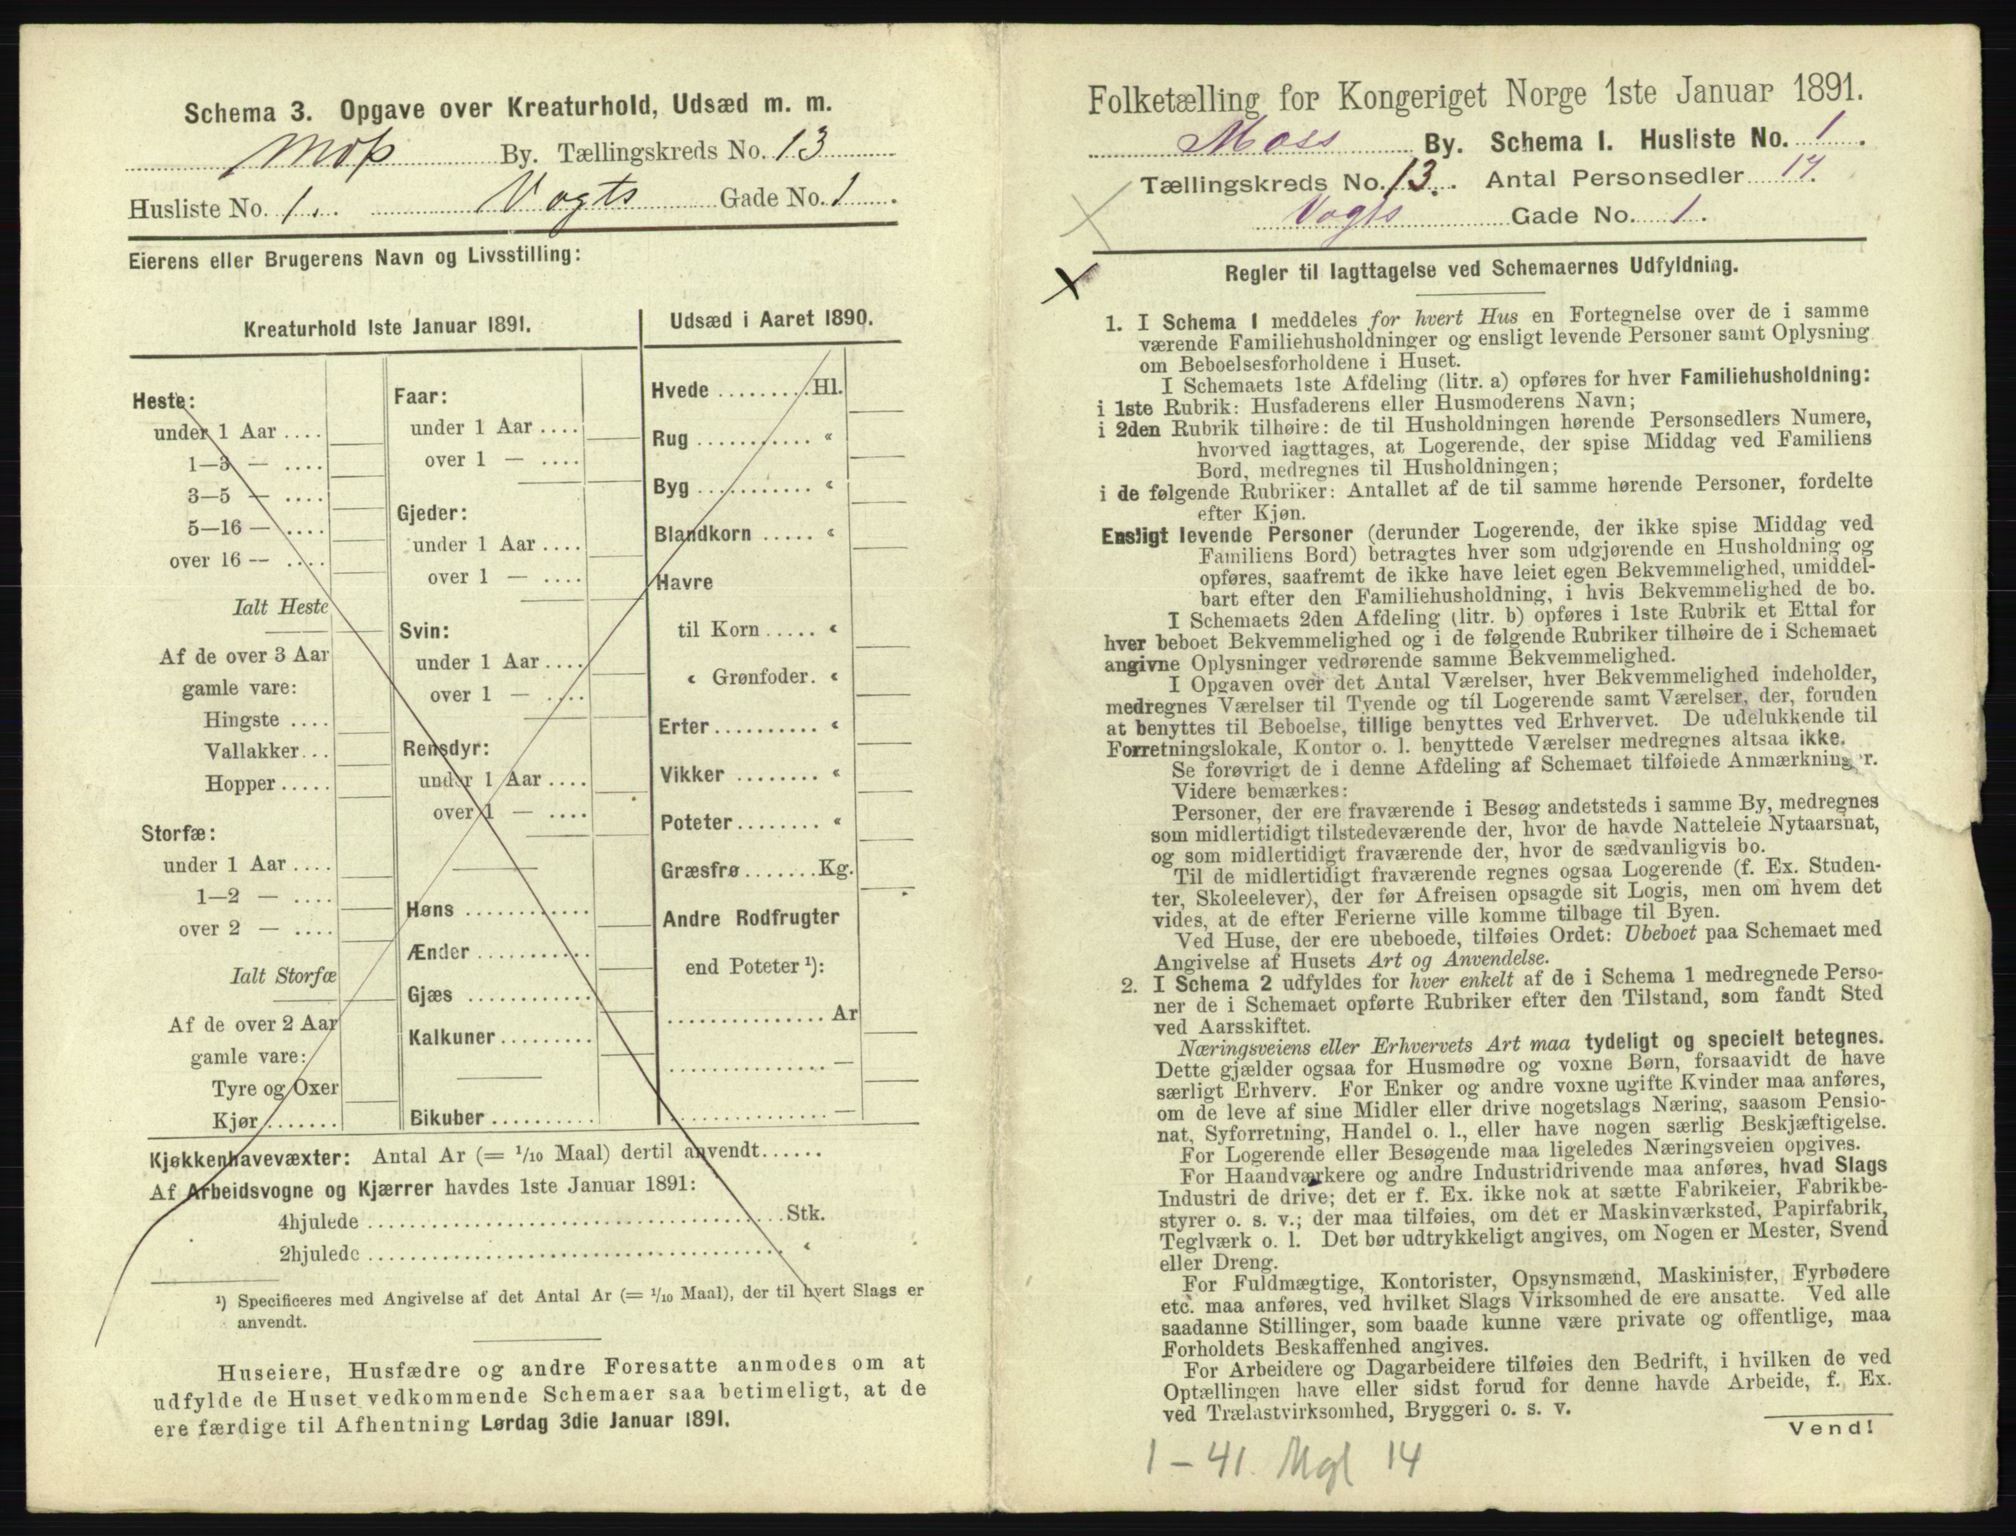 Schema 3. Opgave over Kreaturhold, Udsæd m. m.
Moss By. Tællingskreds No. 13
Husliste No. 1. Vogts Gade No. 1.
Eierens eller Brugerens Navn og Livsstilling:
Kreaturhold 1ste Januar 1891.
Heste:
under 1 Aar ....
1—3 — ....
3—5 — ....
5—16 — ....
over 16 — ....
Ialt Heste
Af de over 3 Aar
gamle vare:
Hingste ....
Vallakker...
Hopper.....
Storfæ:
under 1 Aar ....
1—2 — ....
over 2 — ....
Ialt Storfæ
Af de over 2 Aar
gamle vare:
Tyre og Oxer
Kjør.......
Faar:
under 1 Aar ....
over 1 — ....
Gjeder:
under 1 Aar ....
over 1 — ....
Svin:
under 1 Aar ....
over 1 — ....
Rensdyr:
under 1 Aar ....
over 1 — ....
Høns ............
Ænder ...........
Gjæs ............
Kalkuner.........
Bikuber ..........
Udsæd i Aaret 1890.
Hvede .........Hl.
Rug ........... «
Byg ........... «
Blandkorn ..... «
Havre
til Korn..... «
« Grønfoder. «
Erter.......... «
Vikker ........ «
Poteter........ «
Græsfrø.......Kg.
Andre Rodfrugter
end Poteter ¹):
............... Ar
............... —
............... —
Kjøkkenhavevæxter: Antal Ar (= 1/10 Maal) dertil anvendt......
Af Arbeidsvogne og Kjærrer havdes 1ste Januar 1891:
4hjulede ........................................Stk.
2hjulede ........................................ «
¹) Specificeres med Angivelse af det Antal Ar (= 1/10 Maal), der til hvert Slags er
anvendt.
Huseiere, Husfædre og andre Foresatte anmodes om at
udfylde de Huset vedkommende Schemaer saa betimeligt, at de
ere færdige til Afhentning Lørdag 3die Januar 1891.
Folketælling for Kongeriget Norge 1ste Januar 1891.
Moss By. Schema I. Husliste No. 1.
Tællingskreds No. 13. Antal Personsedler 17.
Vogts Gade No. 1.
Regler til Iagttagelse ved Schemaernes Udfyldning.
1. I Schema 1 meddeles for hvert Hus en Fortegnelse over de i samme
værende Familiehusholdninger og ensligt levende Personer samt Oplysning
om Beboelsesforholdene i Huset.
I Schemaets 1ste Afdeling (litr. a) opføres for hver Familiehusholdning:
i 1ste Rubrik: Husfaderens eller Husmoderens Navn;
i 2den Rubrik tilhøire: de til Husholdningen hørende Personsedlers Numere,
hvorved iagttages, at Logerende, der spise Middag ved Familiens
Bord, medregnes til Husholdningen;
i de følgende Rubriker: Antallet af de til samme hørende Personer, fordelte
efter Kjøn.
Ensligt levende Personer (derunder Logerende, der ikke spise Middag ved
Familiens Bord) betragtes hver som udgjørende en Husholdning og
opføres, saafremt de ikke have leiet egen Bekvemmelighed, umiddel-
bart efter den Familiehusholdning, i hvis Bekvemmelighed de bo.
I Schemaets 2den Afdeling (litr. b) opføres i 1ste Rubrik et Ettal for
hver beboet Bekvemmelighed og i de følgende Rubriker tilhøire de i Schemaet
angivne Oplysninger vedrørende samme Bekvemmelighed.
I Opgaven over det Antal Værelser, hver Bekvemmelighed indeholder,
medregnes Værelser til Tyende og til Logerende samt Værelser, der, foruden
at benyttes til Beboelse, tillige benyttes ved Erhvervet. De udelukkende til
Forretningslokale, Kontor o. l. benyttede Værelser medregnes altsaa ikke.
Se forøvrigt de i denne Afdeling af Schemaet tilføiede Anmærkninger.
Videre bemærkes:
Personer, der ere fraværende i Besøg andetsteds i samme By, medregnes
som midlertidigt tilstedeværende der, hvor de havde Natteleie Nytaarsnat,
og som midlertidigt fraværende der, hvor de sædvanligvis bo.
Til de midlertidigt fraværende regnes ogsaa Logerende (f. Ex. Studen-
ter, Skoleelever), der før Afreisen opsagde sit Logis, men om hvem det
vides, at de efter Ferierne ville komme tilbage til Byen.
Ved Huse, der ere ubeboede, tilføies Ordet: Ubeboet paa Schemaet med
Angivelse af Husets Art og Anvendelse.
2. I Schema 2 udfyldes for hver enkelt af de i Schema 1 medregnede Perso-
ner de i Schemaet opførte Rubriker efter den Tilstand, som fandt Sted
ved Aarsskiftet.
Næringsveiens eller Erhvervets Art maa tydeligt og specielt betegnes.
Dette gjælder ogsaa for Husmødre og voxne Børn, forsaavidt de have
særligt Erhverv. For Enker og andre voxne ugifte Kvinder maa anføres,
om de leve af sine Midler eller drive nogetslags Næring, saasom Pensio-
nat, Syforretning, Handel o. l., eller have nogen særlig Beskjæftigelse.
For Logerende eller Besøgende maa ligeledes Næringsveien opgives.
For Haandværkere og andre Industridrivende maa anføres, hvad Slags
Industri de drive; det er f. Ex. ikke nok at sætte Fabrikeier, Fabrikbe-
styrer o. s. v.; der maa tilføies, om det er Maskinværksted, Papirfabrik,
Teglværk o. l. Det bør udtrykkeligt angives, om Nogen er Mester, Svend
eller Dreng.
For Fuldmægtige, Kontorister, Opsynsmænd, Maskinister, Fyrbødere
etc. maa anføres, ved hvilket Slags Virksomhed de ere ansatte. Ved alle
saadanne Stillinger, som baade kunne være private og offentlige, maa
Forholdets Beskaffenhed angives.
For Arbeidere og Dagarbeidere tilføies den Bedrift, i hvilken de ved
Optællingen have eller sidst forud for denne havde Arbeide, f. Ex.
ved Trælastvirksomhed, Bryggeri o. s. v.
Vend!
1 – 41. Mgl 14